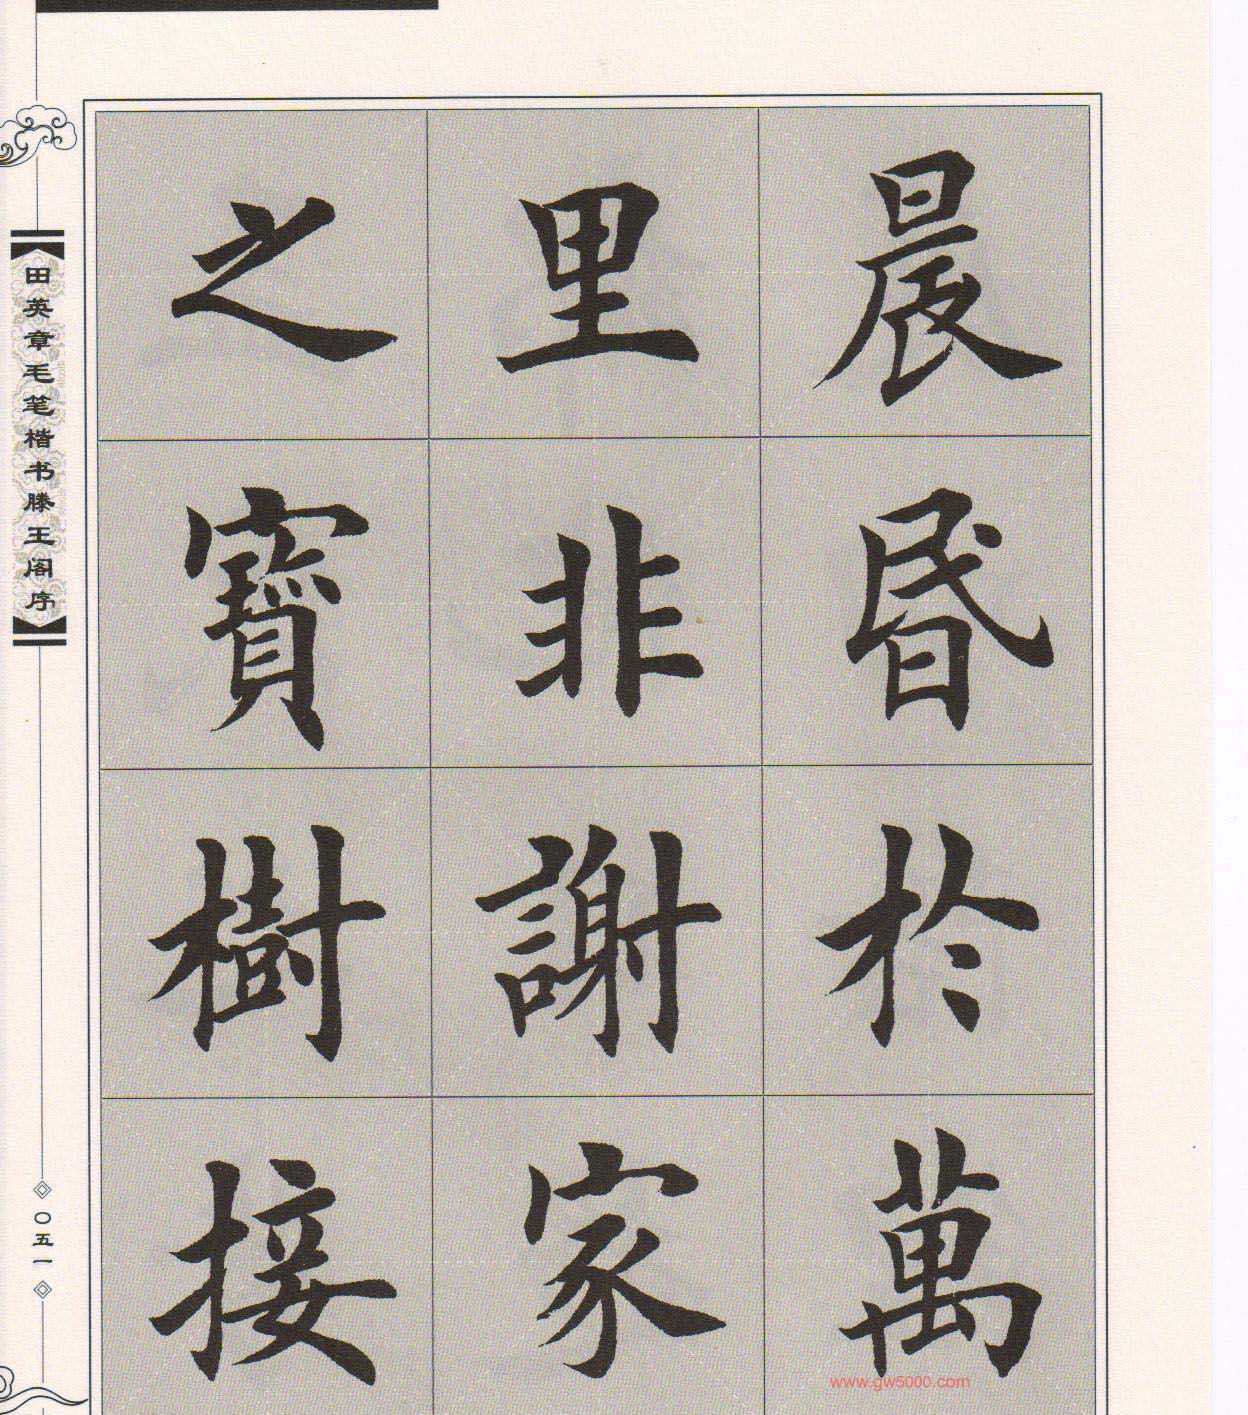 晨昏於萬
里非謝家
之寶樹接
田英章毛笔楷书滕王阁序
〇五一
www.gw5000.com